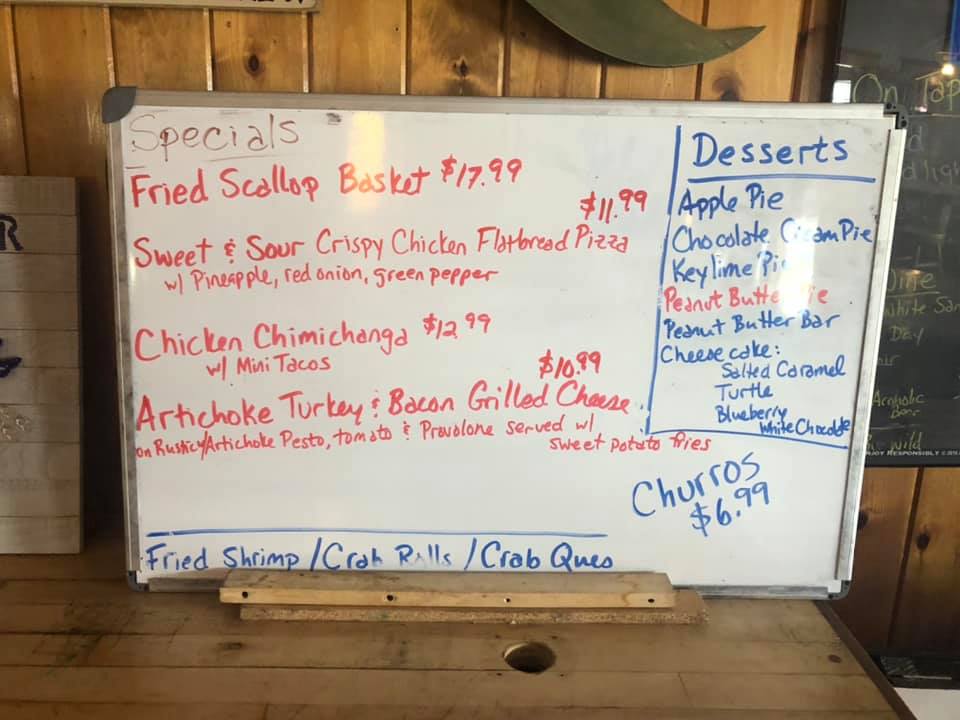 Specials
Fried Scallop Basket $17.99
$11.99
Sweet & Sour Crispy Chicken Flatbread Pizza
w/ Pineapple, red onion, green pepper
Chicken Chimichanga $12.99
w/ Mini Tacos
$10.99
Artichoke Turkey & Bacon Grilled Cheese
on Rustic w/ Artichoke Pesto, tomato & Provolone served w/
sweet potato fries
Fried Shrimp / Crab Rolls / Crab Ques
Desserts
Apple Pie
Chocolate Cream Pie
Key lime Pie
Peanut Butter Pie
Peanut Butter Bar
Cheese cake:
Salted Caramel
Turtle
Blueberry
White Chocolate
Churros
$6.99
R
On Tap
light
White
Day
wild